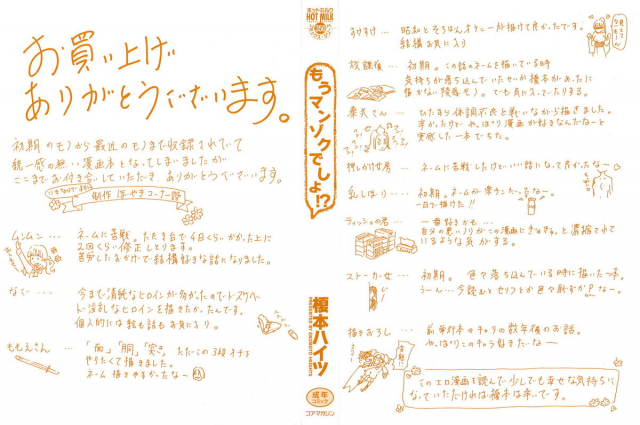 お買い上げ
ありがとうございます。
初期のモノから最近のモノまで収録されていて
統一感の無い漫画本となってしまいましたが
ここまでお付き合いしていただき ありがとうございます。
いきなりですが
制作ぼやきコーナー
ムンムン…
ネームに苦戦。たたき台で4日くらいかかった上に
2回くらい修正しとります。
苦労したおかげで結構好きな話になりました。
なご…
今まで清純なヒロインが多かったのでド・スケベ
ド淫乱なヒロインを描きたかったんです。
個人的には絵も話もお気に入り。
ももえさん…
「面」「胴」「突き」ただこの3段オチを
やりたくて描きました。
ネーム描きやすかったなー
ホットミルク
HOT MILK
もうマンゾクでしょ!?
榎本ハイツ
PRESENTED BY ENOMOTO HEIGHTS
成年
コミック
コアマガジン
すけすけ…
昭和とそろばんオナニーが描けて良かったです。
結構お気に入り
放課後…
初期。この話のネームを描いている時
気持ちが落ち込んでいたせいか榎本があまり
描かない陵辱モノ。でも気に入っていたりする。
ひたすら体調不良と戦いながら描きました。
辛かったけど やっぱり漫画が好きなんだなーと
実感した一本でもた。
押しかけ女房…
ネームに苦戦したけどいい話になって良かったなー
乳しぼり…
初期。ネームが楽ちんだったなー。
一日で描けた!!
ティッシュの君…
一番好きかも…
自分の思いノリがこの漫画にぎゅぎゅっと濃縮されて
いるような気がする。
ストーカー女…
初期。色々落ち込んでいる時に描いた一本。
うーん…今読むとセリフとか色々恥ずかPなー。
描きおろし…
前単行本のキャラの数年後のお話。
やっぱりこのキャラ好きだなー
このエロ漫画を読んで少しでも幸せな気持ちに
なっていただければ榎本は幸いです。